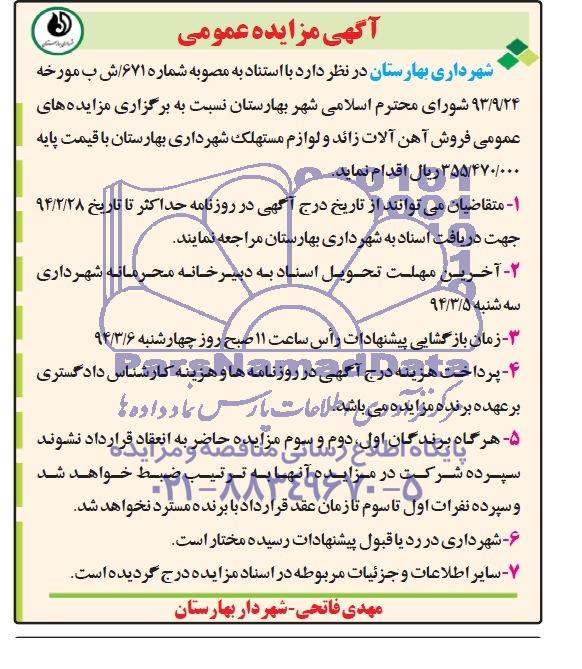 آگهی مزایده عمومی
شهرداری بهارستان
شهرداری بهارستان در نظر دارد با استناد به مصوبه شماره ۶۷۱/ش ب مورخه
۹۳/۹/۲۴ شورای محترم اسلامی شهر بهارستان نسبت به برگزاری مزایده‌های
عمومی فروش آهن آلات زائد و لوازم مستهلک شهرداری بهارستان با قیمت پایه
۳۵۵/۴۷۰/۰۰۰ ریال اقدام نماید.
۱- متقاضیان می توانند از تاریخ درج آگهی در روزنامه حداکثر تا تاریخ ۹۴/۲/۲۸
جهت دریافت اسناد به شهرداری بهارستان مراجعه نمایند.
۲- آخرین مهلت تحویل اسناد به دبیرخانه محرمانه شهرداری
سه شنبه ۹۴/۳/۵
۳- زمان بازگشایی پیشنهادات رأس ساعت ۱۱ صبح روز چهارشنبه ۹۴/۳/۶
ParsNamadData
۴- پرداخت هزینه درج آگهی در روزنامه ها و هزینه کارشناس دادگستری
مرکز فرآوری اطلاعات پارس نماد داده ها
بر عهده برنده مزایده می باشد.
۵- هرگاه برندگان اول، دوم و سوم مزایده حاضر به انعقاد قرارداد نشوند
پایگاه اطلاع رسانی مناقصه و مزایده
سپرده شرکت در مزایده آنها به ترتیب ضبط خواهد شد
۰۲۱-۸۸۳۴۹۶۷۰-۵
و سپرده نفرات اول تا سوم تا زمان عقد قرارداد با برنده مسترد نخواهد شد.
۶- شهرداری در رد یا قبول پیشنهادات رسیده مختار است.
۷- سایر اطلاعات و جزئیات مربوطه در اسناد مزایده درج گردیده است.
مهدی فاتحی- شهردار بهارستان